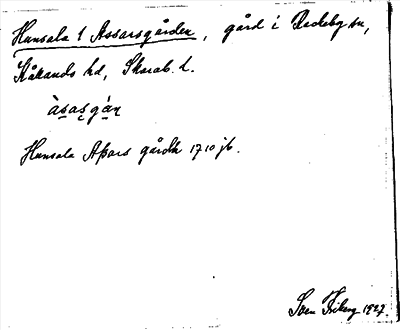 Hunsala 1 Assarsgården, gård i Dadesby sn,
Kåkands hd, Skarab. l.
àsasgán
Hunsala Aßars gårdh 1710 jb.
Sven Friberg 1927.